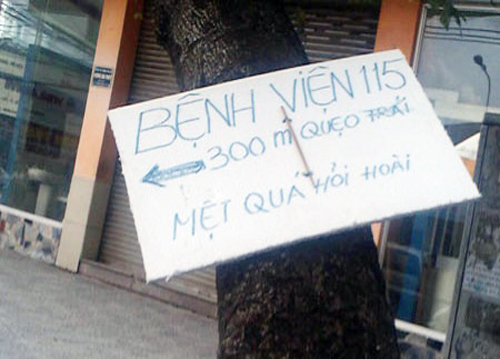 BỆNH VIỆN 115
300 m QUẸO TRÁI
MỆT QUÁ HỎI HOÀI